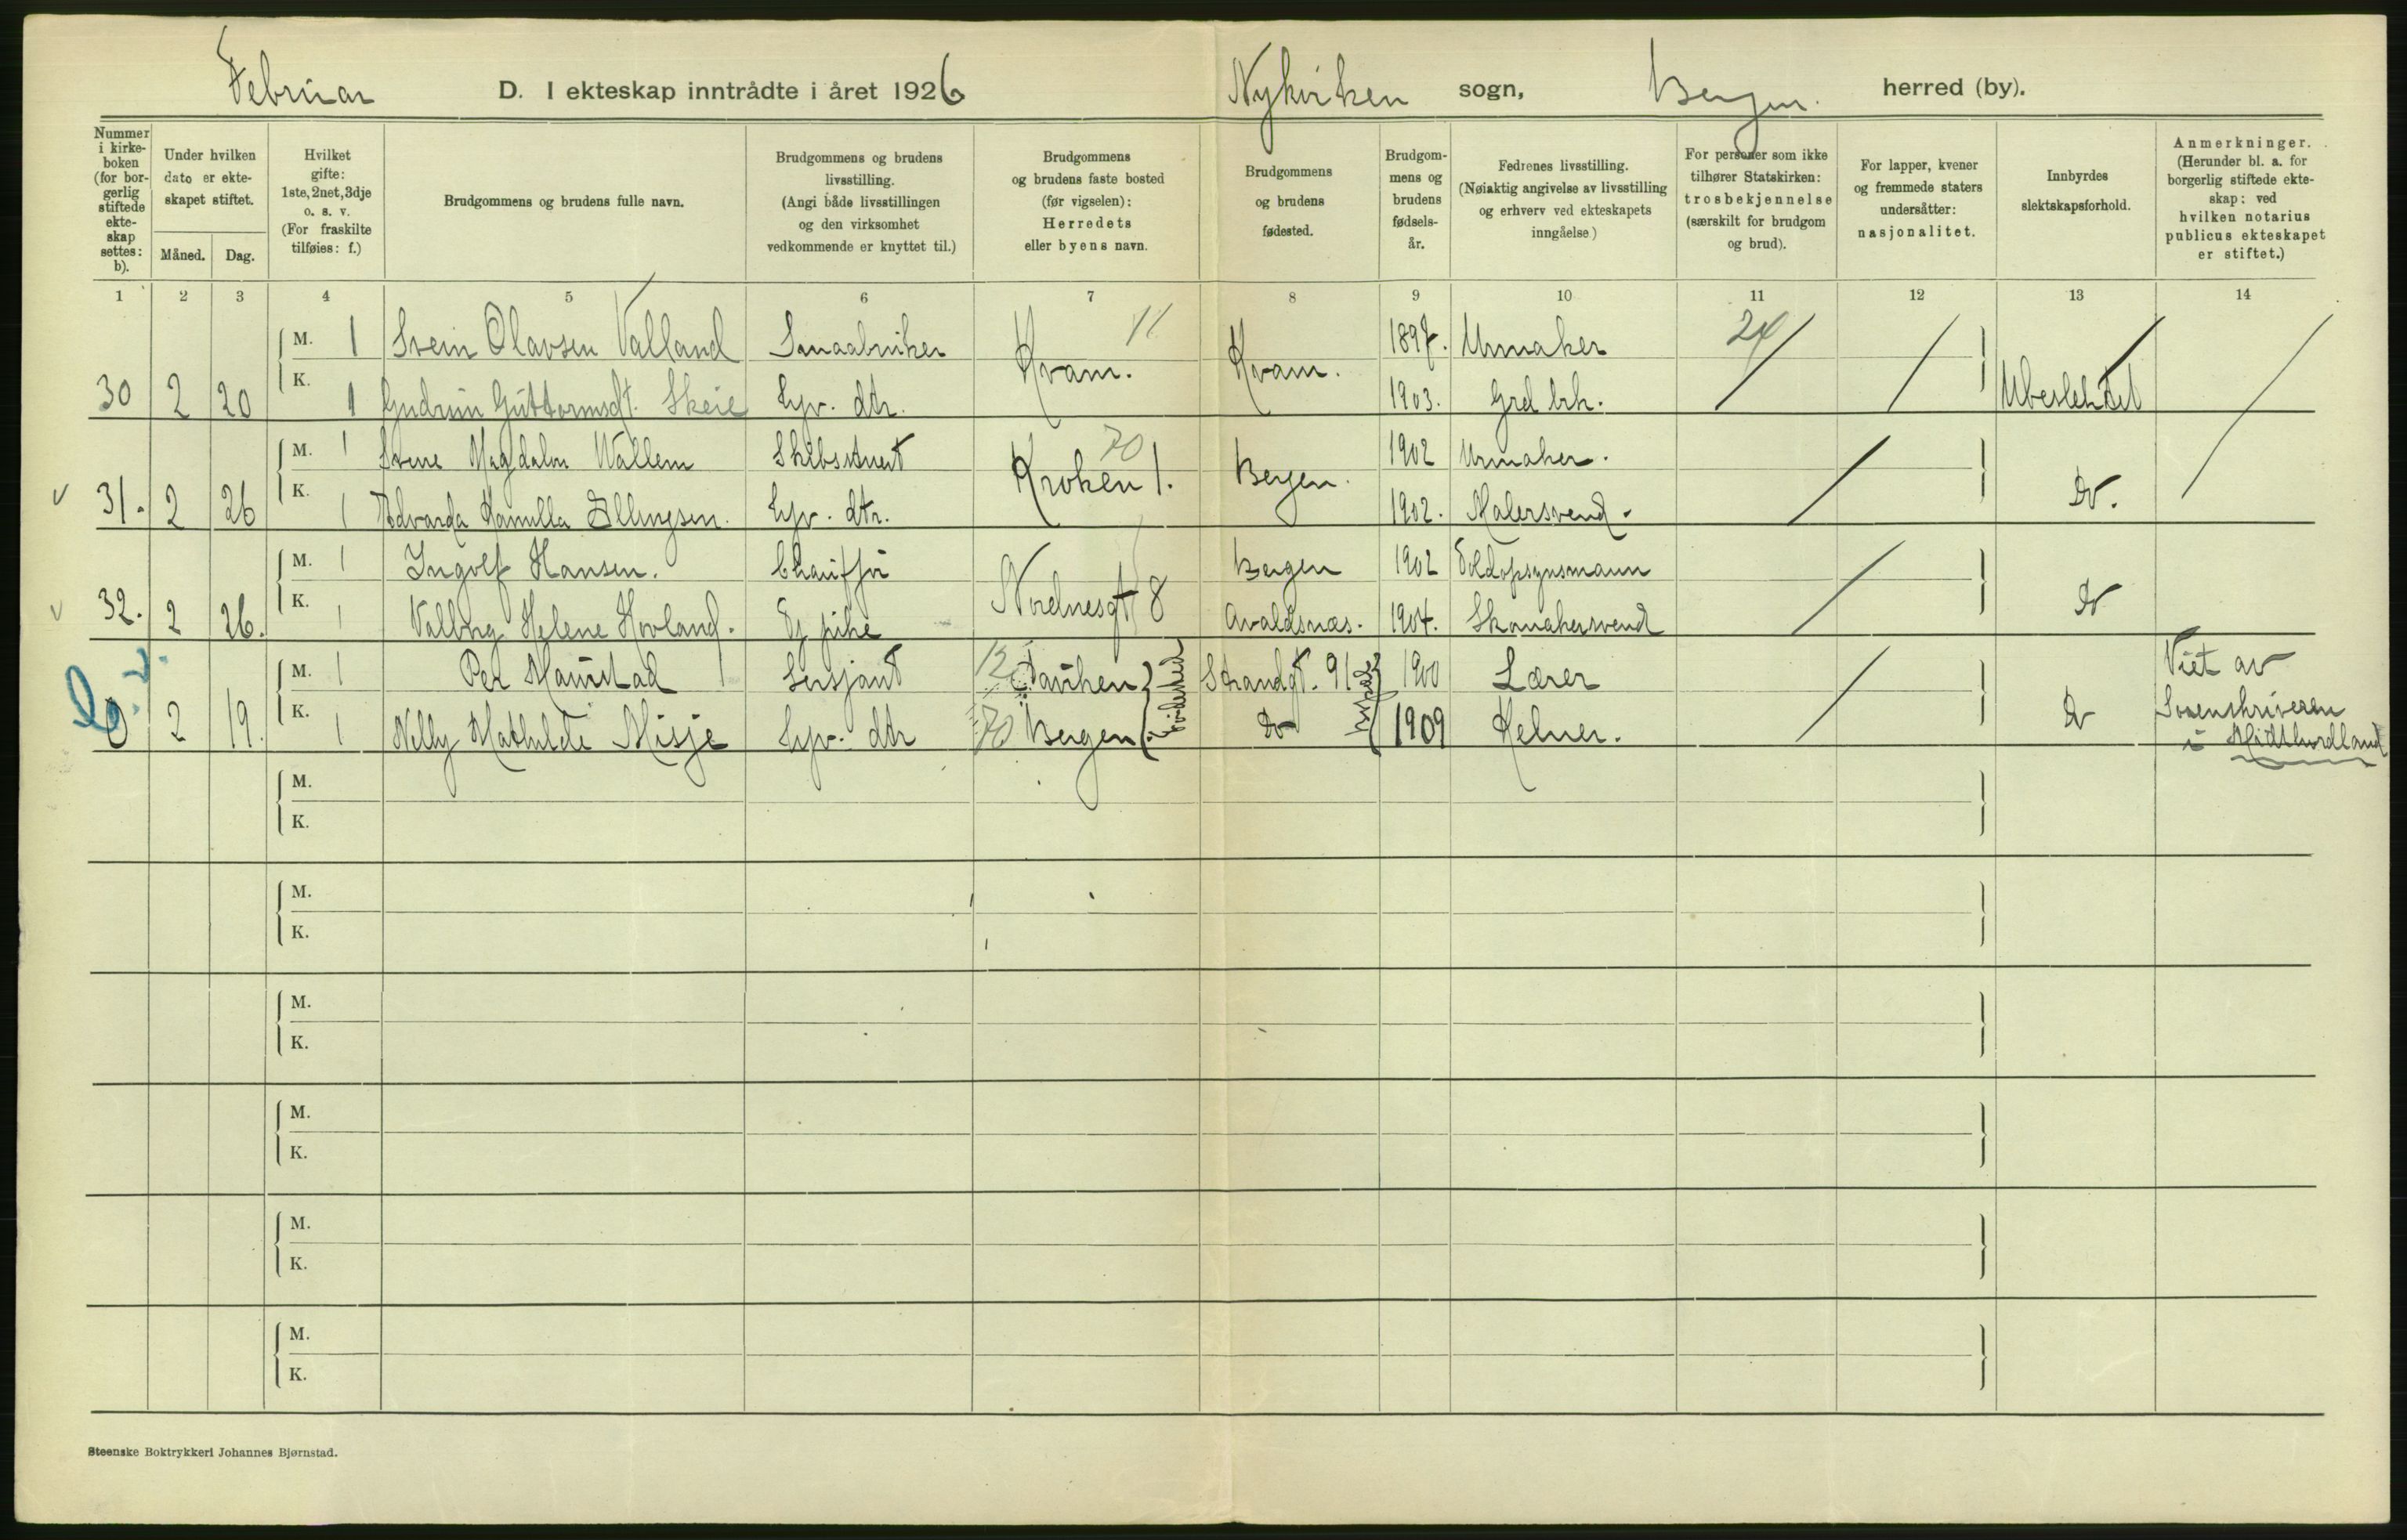 Februar D. I ekteskap inntrådte i året 1926 Nykirken sogn, Bergen. herred (by).
Nummer i kirke-boken (for bor-gerlig stiftede ekte-skap settes: b).
Under hvilken dato er ekte-skapet stiftet.
Måned. Dag.
Hvilket gifte: 1ste, 2net, 3dje o. s. v. (For fraskilte tilføies: f.)
Brudgommens og brudens fulle navn.
Brudgommens og brudens livsstilling. (Angi både livsstillingen og den virksomhet vedkommende er knyttet til.)
Brudgommens og brudens faste bosted (før vigselen): Herredets eller byens navn.
Brudgommens og brudens fødested.
Brudgom-mens og brudens fødsels-år.
Fedrenes livsstilling. (Nøiaktig angivelse av livsstilling og erhverv ved ekteskapets inngåelse)
For personer som ikke tilhører Statskirken: trosbekjennelse (særskilt for brudgom og brud).
For lapper, kvener og fremmede staters undersåtter: nasjonalitet.
Innbyrdes slektskapsforhold.
Anmerkninger. (Herunder bl. a. for borgerlig stiftede ekte-skap: ved hvilken notarius publicus ekteskapet er stiftet.)
1 2 3 4 5 6 7 8 9 10 11 12 13 14
M. 1 Svein Olavsen Valland Smaabruker Kvam. 11 Kvam. 1897. Urmaker 24
30 2 20 K. 1 Gudrun Guttormsdt. Skeie Hjv. dtr. 1903. Grd brk. Ubeslektet
M. 1 Magdalon Wallem Skibsstuert Kroken 1. 70 Bergen. 1902 Urmaker.
31. 2 26 K. 1 Edvarda Kamilla Ellingsen. Hjv. dtr. 1902. Malersvend. Do.
M. 1 Ingolf Hansen. Chauffør Nordnesgt 8 Bergen 1902 Toldopsynsmann
32. 2 26. K. 1 Valborg Helene Hovland. Hj pike Avaldsnæs. 1904. Skomakersvend Do
M. 1 Per Maurstad Sersjant 12 Strandgt. 91 1900 Lærer Viet av
2 19. K. 1 Nelly Mathilde Misje Hjv. dtr 70 Bergen Do 1909 Kelner. Do Sorenskriveren
i Midthordland
M.
K.
M.
K.
M.
K.
M.
K.
M.
K.
M.
K.
Steenske Boktrykkeri Johannes Bjørnstad.